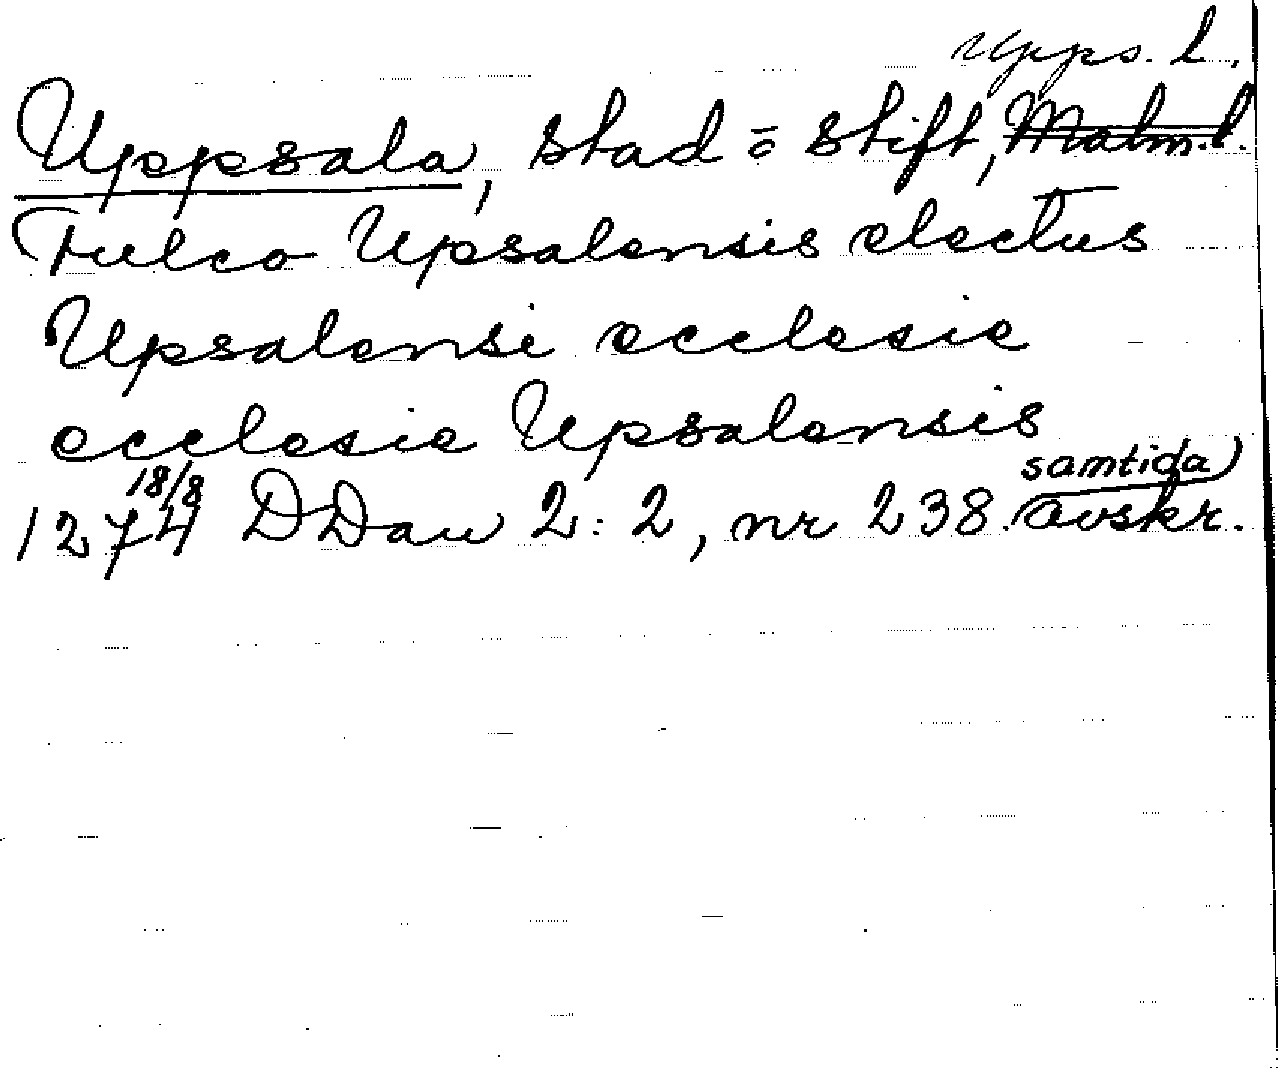 Upps. l.
Uppsala, stad o stift, Malm. l.
Fulco Upsalensis electus
Upsalensi ecclesie
ecclesie Upsalensis
18/8 samtida
1274 DDan 2:2, nr 238. avskr.